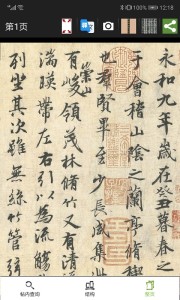 12:18
第1页
永和九年歲在癸丑暮春之
于會稽山陰之蘭亭脩稧
也群賢畢至少長咸集此
崇山
有峻領茂林脩竹又有清
湍暎帶左右引以為流觴
列坐其次雖無絲竹管弦
帖内查询
结构